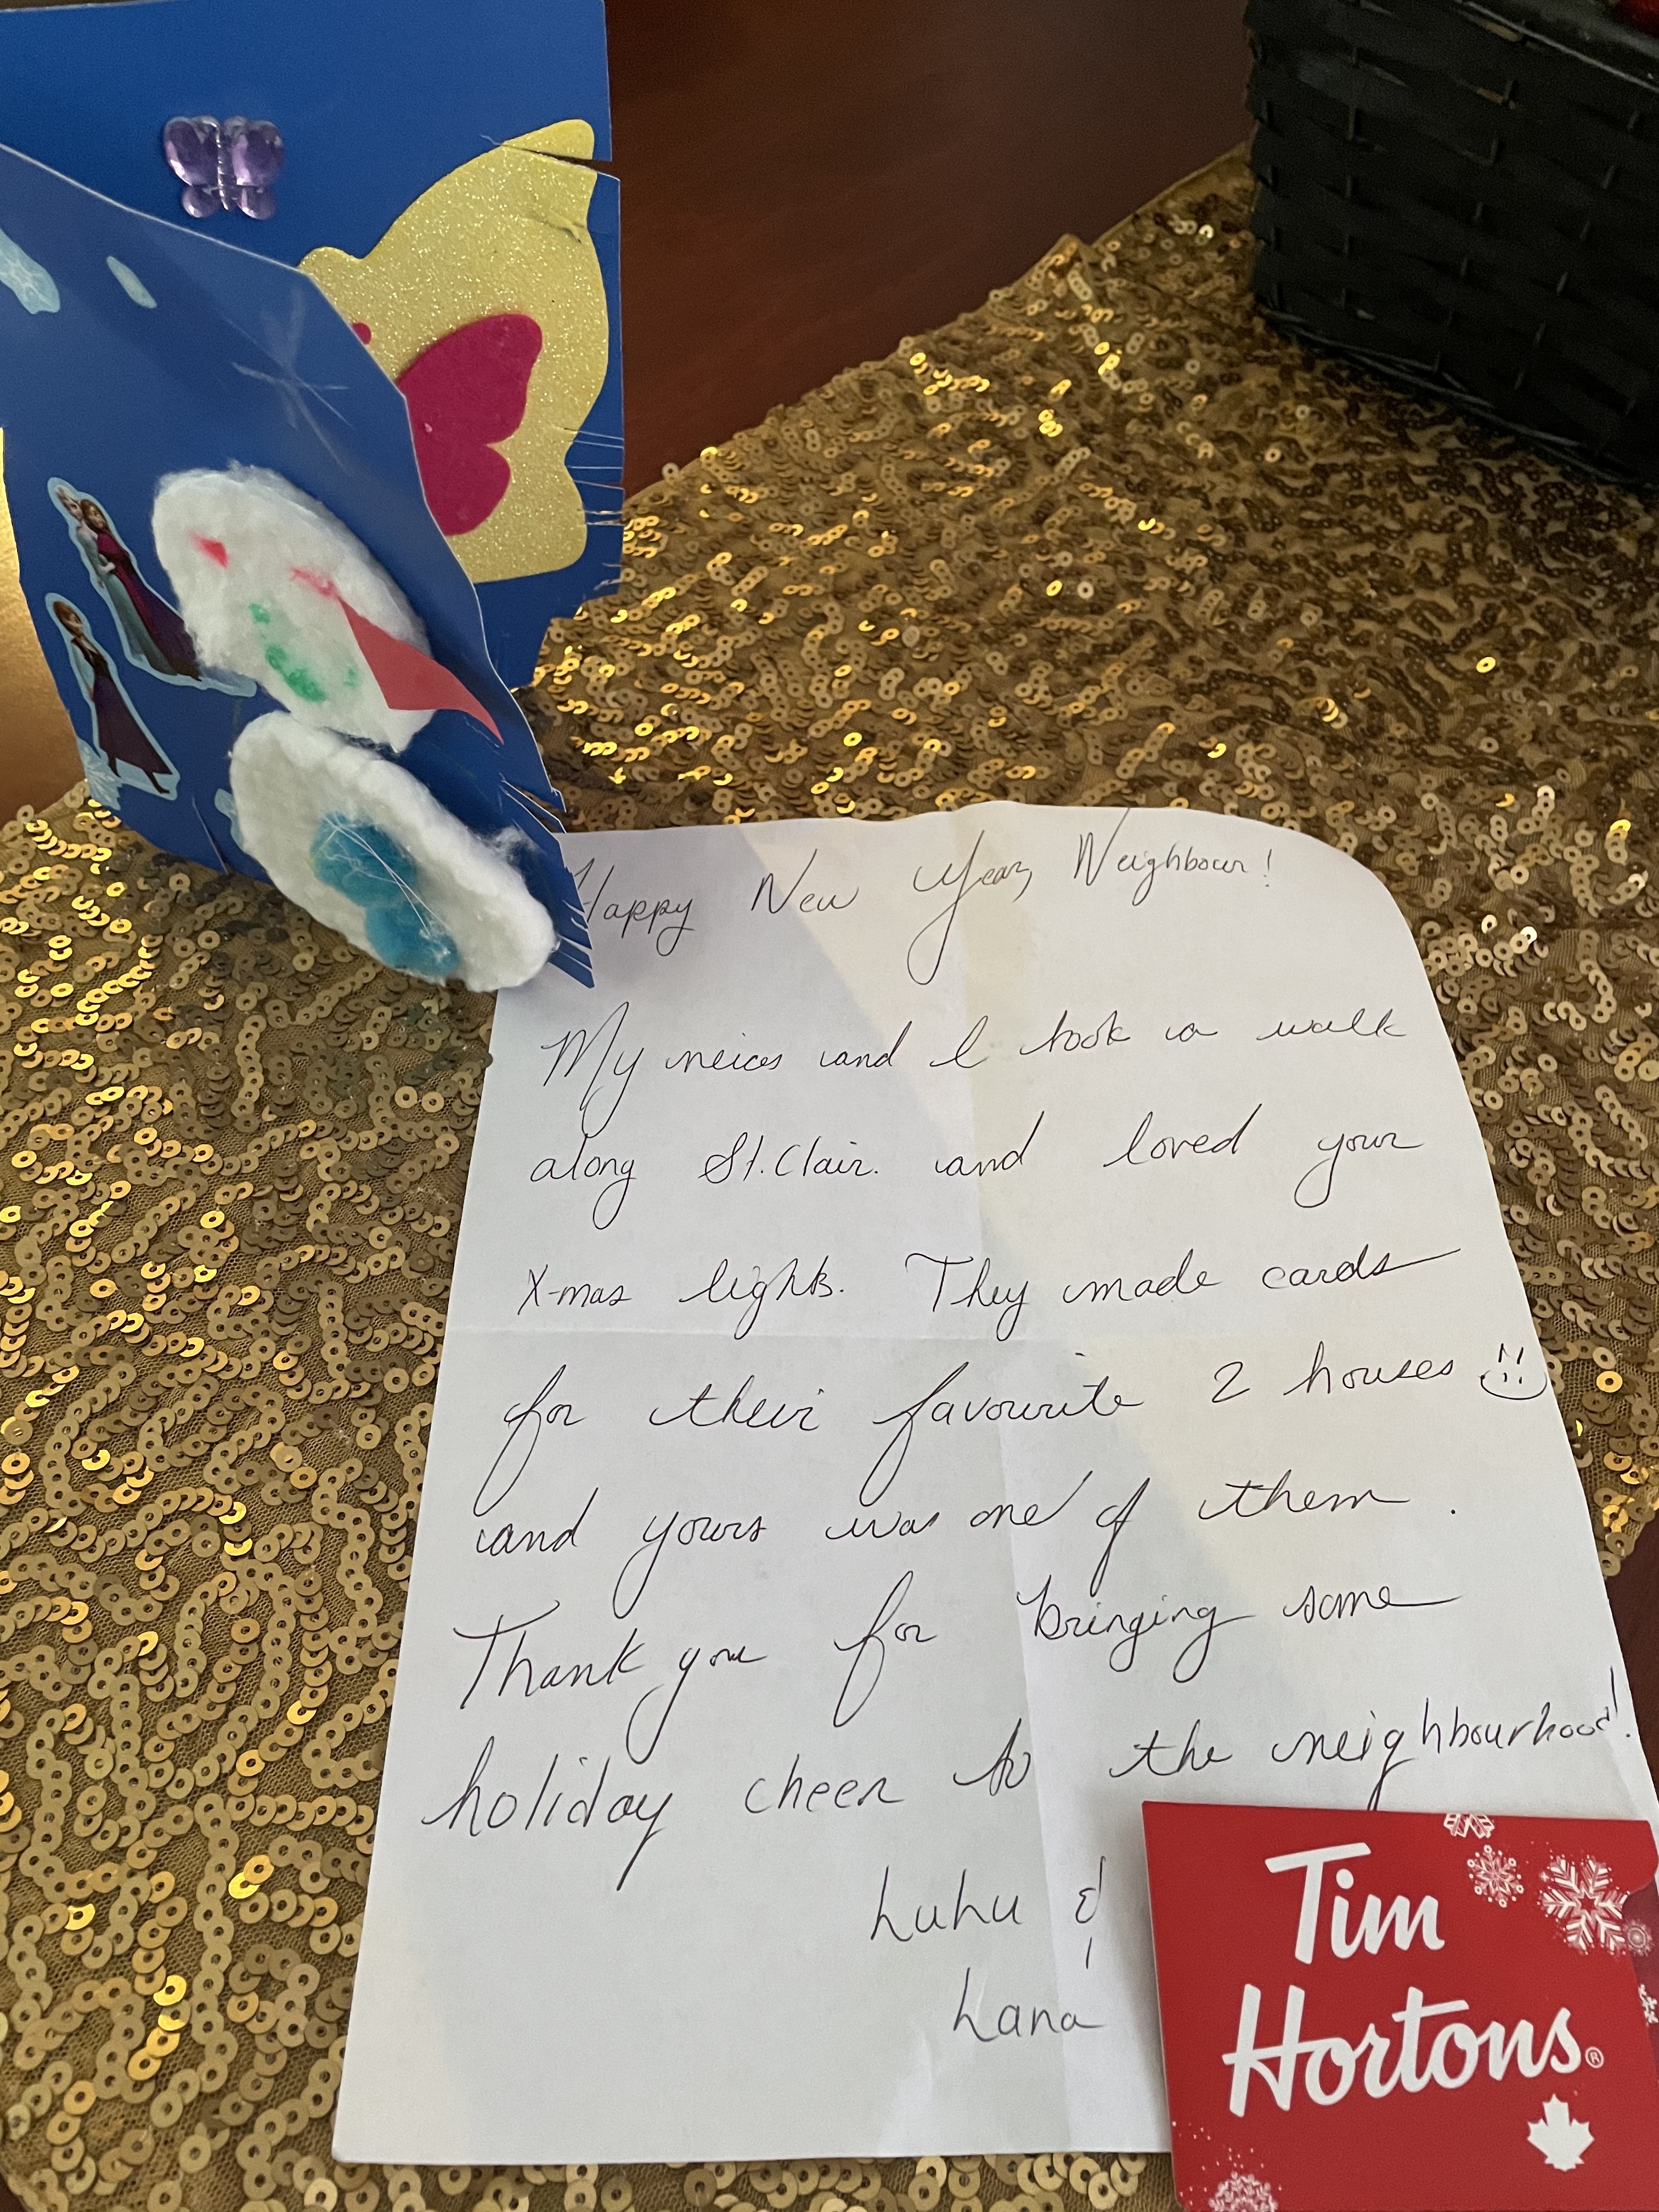 Happy New Year, Neighbour!
My neices and I took a walk
along St. Clair. and loved your
X-mas lights. They made cards
for their favourite 2 houses
and yours was one of them.
Thank you for bringing some
holiday cheer to the neighbourhood!
Luhu &
Lana
Tim
Hortons®